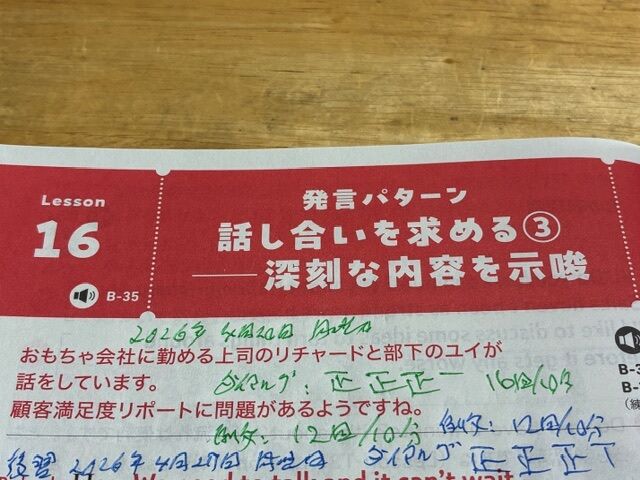 Lesson
16
B-35
発言パターン
話し合いを求める③
——深刻な内容を示唆
2026年 4月20日 月曜日
おもちゃ会社に勤める上司のリチャードと部下のユイが
話をしています。
ダイアログ: 正 正 正 16回/10分
顧客満足度リポートに問題があるようですね。
例文: 12回/10分 例文: 12回/10分
復習 2026年 4月27日 月曜日 ダイアログ 正 正 正 正 T
We need to talk and it can't wait